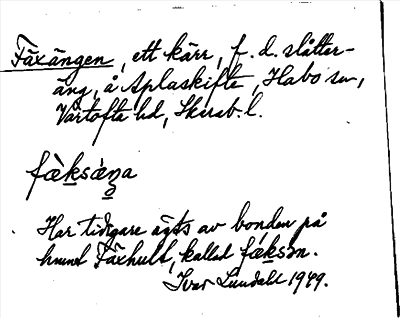 Fäxängen, ett kärr, f.d. slåtter-
äng, å Aplaskifte, Habo sn,
Vartofte hd, Skarab. l.
fæ̀ksǽŋa
Har tidigare ägts av bonden på
hmnt Fäxhult, kallad fǽksən.
Ivar Lundahl 1949.